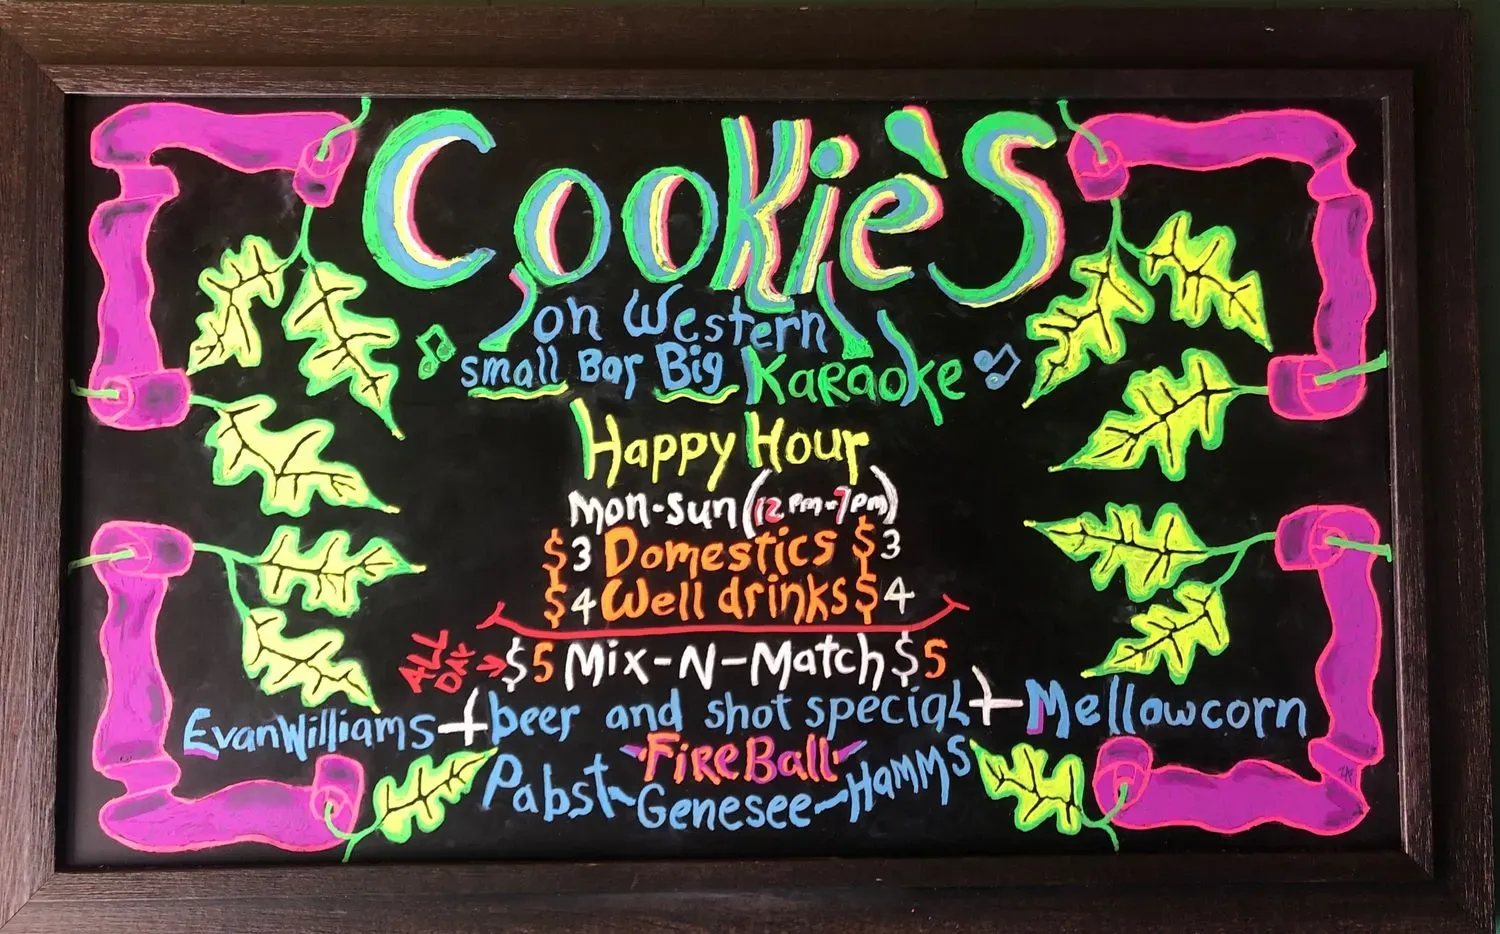 Cookie's
on Western
small Bar Big Karaoke
Happy Hour
Mon-Sun (12pm-7pm)
$3 Domestics $3
$4 Well drinks $4
ALL DAY $5 Mix-N-Match $5
Evan Williams + beer and shot special + Mellowcorn
FireBall
Pabst - Genesee - HAMMS